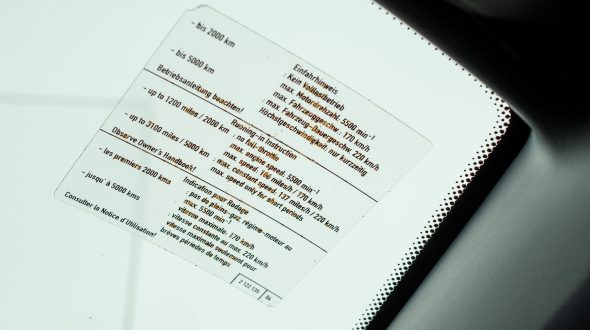 Einfahrhinweis
- bis 2000 km : Kein Vollastbetrieb
max. Motordrehzahl. 5500 min-1
max. Fahrzeuggeschw.: 170 km/h
- bis 5000 km : max. Fahrzeug-Dauergeschw. 220 km/h
Höchstgeschwindigkeit: nur kurzzeitig
Betriebsanleitung beachten!
Running-in Instruction
- up to 1200 miles / 2000 km : no full-throttle
max. engine speed. 5500 min-1
max. speed: miles/h / 170 km/h
- up to 3100 miles / 5000 km : max. constant speed. 137 miles/h / 220 km/h
max. speed only for short periods
Observe Owner's Handbook!
Indication pour Rodage
- les premiers 2000 kms : pas de pleins-gaz. régime-moteur au
max. 5500 min-1
vitesse maximale: 170 km/h
- jusqu' à 5000 kms : vitesse constante au max. 220 km/h
vitesse maximale seulement pour
brèves périodes de temps
Consulter la Notice d'Utilisation!
2 122 135 04